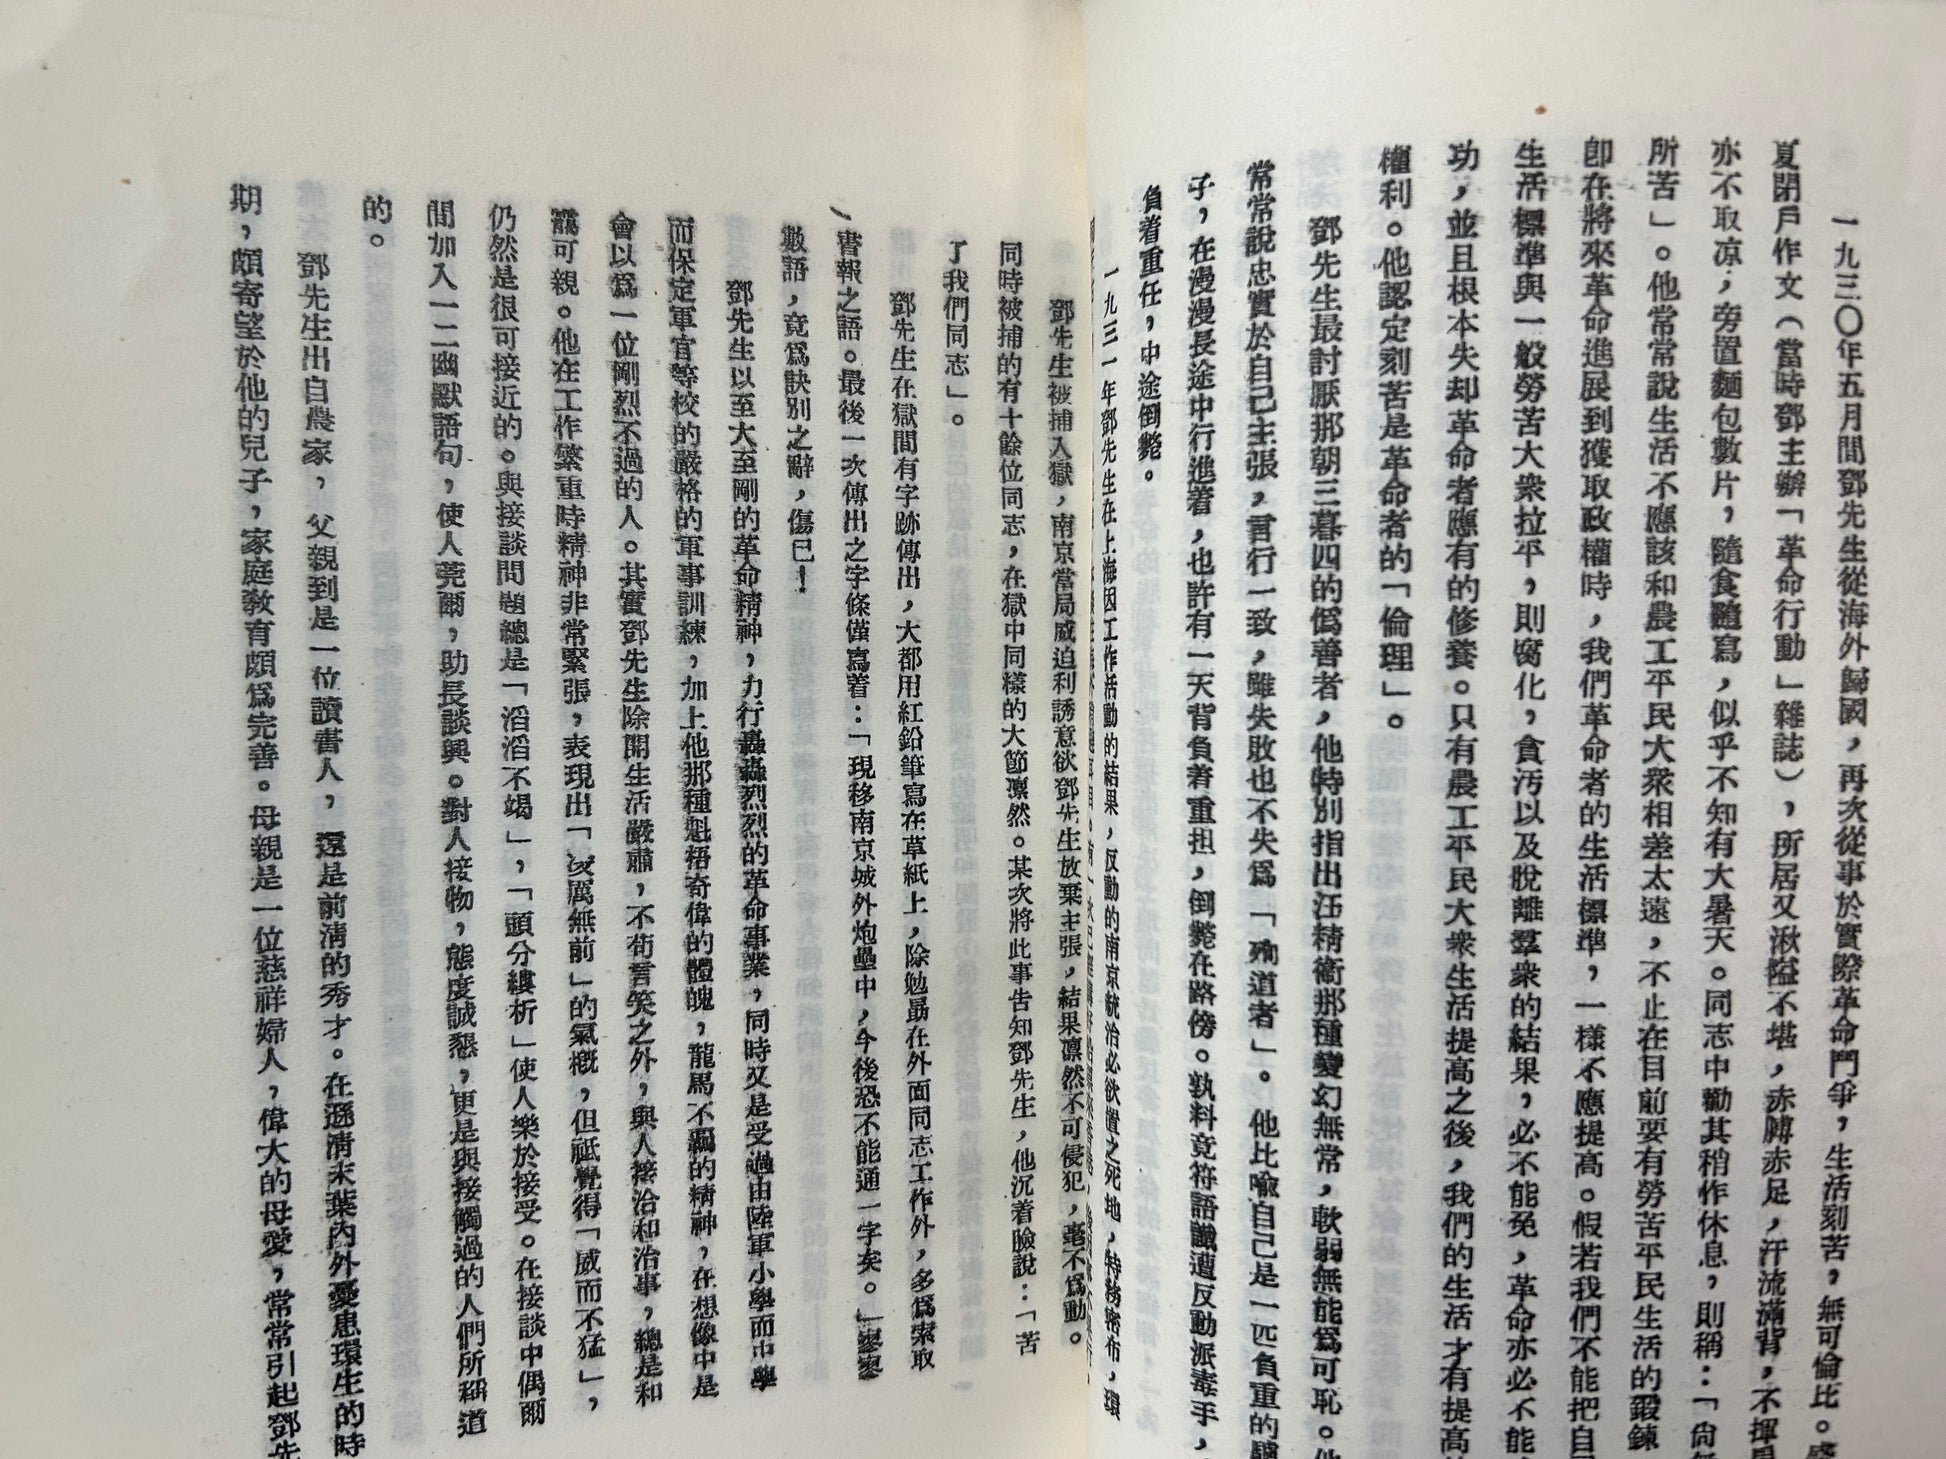 一九三〇年五月間鄧先生從海外歸國，再次從事於實際革命鬥爭，生活刻苦，無可倫比。盛
夏閉戶作文（當時鄧主辦「革命行動」雜誌），所居又湫隘不堪，赤膊赤足，汗流滿背，不揮
亦不取凉；旁置麵包數片，隨食隨寫，似乎不知有大暑天。同志中勸其稍作休息，則稱：「尙
所苦」。他常常說生活不應該和農工平民大衆相差太遠，不止在目前要有勞苦平民生活的鍛鍊
卽在將來革命進展到獲取政權時，我們革命者的生活標準，一樣不應提高。假若我們不能把自
生活標準與一般勞苦大衆拉平，則腐化，貪污以及脫離羣衆的結果，必不能免，革命亦必不能
功，並且根本失却革命者應有的修養。只有農工平民大衆生活提高之後，我們的生活才有提高
權利。他認定刻苦是革命者的「倫理」。
鄧先生最討厭那朝三暮四的僞善者，他特別指出汪精衞那種變幻無常，軟弱無能爲可恥。他
常常說忠實於自己主張，言行一致，雖失敗也不失爲「殉道者」。他比喩自己是一匹負重的騾
子，在漫漫長途中行進着，也許有一天背負着重担，倒斃在路傍。孰料竟符語讖遭反動派毒手，
負着重任，中途倒斃。
一九三一年鄧先生在上海因工作活動的結果，反動的南京統治必欲置之死地，特務密布，環
鄧先生被捕入獄，南京當局威迫利誘意欲鄧先生放棄主張，結果凛然不可侵犯，毫不爲動。
同時被捕的有十餘位同志，在獄中同樣的大節凛然。某次將此事告知鄧先生，他沉着臉說：「苦
了我們同志」。
鄧先生在獄間有字跡傳出，大都用紅鉛筆寫在草紙上，除勉勗在外面同志工作外，多爲索取
書報之語。最後一次傳出之字條僅寫着：「現移南京城外炮壘中，今後恐不能通一字矣。」寥寥
數語，竟爲訣別之辭，傷已！
鄧先生以至大至剛的革命精神，力行轟轟烈烈的革命事業，同時又是受過由陸軍小學而中學
而保定軍官等校的嚴格的軍事訓練，加上他那種魁梧奇偉的體魄，龍馬不羈的精神，在想像中是
會以爲一位剛烈不過的人。其實鄧先生除開生活嚴肅，不苟言笑之外，與人接洽和治事，總是和
靄可親。他在工作繁重時精神非常緊張，表現出「淩厲無前」的氣槪，但祗覺得「威而不猛」，
仍然是很可接近的。與接談問題總是「滔滔不竭」，「頭分縷析」使人樂於接受。在接談中偶爾
間加入一二幽默語句，使人莞爾，助長談興。對人接物，態度誠懇，更是與接觸過的人們所稱道
的。
鄧先生出自農家，父親到是一位讀書人，還是前淸的秀才。在遜淸末葉內外憂患環生的時
期，頗寄望於他的兒子，家庭教育頗爲完善。母親是一位慈祥婦人，偉大的母愛，常常引起鄧先